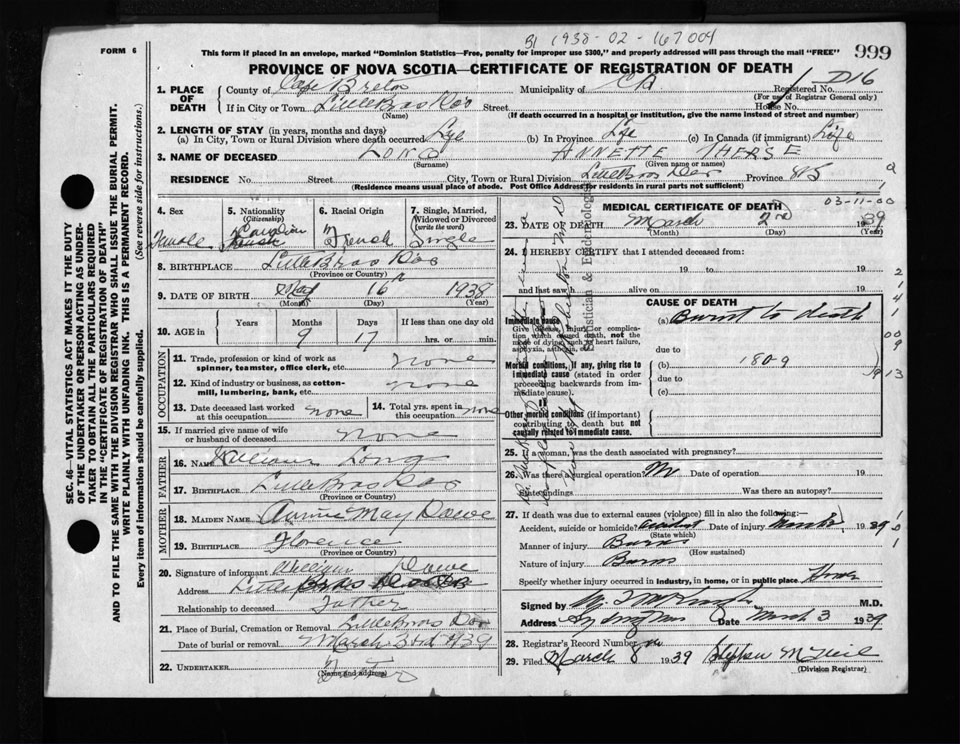 B1 1938-02-167004
FORM 6
This form if placed in an envelope, marked "Dominion Statistics—Free, penalty for improper use $300," and properly addressed will pass through the mail "FREE"
999
PROVINCE OF NOVA SCOTIA—CERTIFICATE OF REGISTRATION OF DEATH
SEC. 46—VITAL STATISTICS ACT MAKES IT THE DUTY OF THE UNDERTAKER OR PERSON ACTING AS UNDERTAKER TO OBTAIN ALL THE PARTICULARS REQUIRED IN THE "CERTIFICATE OF REGISTRATION OF DEATH" AND TO FILE THE SAME WITH THE DIVISION REGISTRAR WHO SHALL ISSUE THE BURIAL PERMIT.
WRITE PLAINLY WITH UNFADING INK. THIS IS A PERMANENT RECORD.
Every item of information should be carefully supplied. (See reverse side for instructions.)
1. PLACE OF DEATH
County of Cape Breton Municipality of CB Registered No. D16
(For use of Registrar General only)
If in City or Town Little Bras Dor Street House No.
(Name) (If death occurred in a hospital or institution, give the name instead of street and number)
2. LENGTH OF STAY (in years, months and days)
(a) In City, Town or Rural Division where death occurred Life (b) In Province Life (c) In Canada (if immigrant) Life
3. NAME OF DECEASED LONG ANNETTE THERSE
(Surname) (Given name or names)
RESIDENCE No. Street City, Town or Rural Division Little Bras Dor Province
(Residence means usual place of abode. Post Office Address for residents in rural parts not sufficient)
03-11-00
4. Sex Female
5. Nationality (Citizenship) Canadian
6. Racial Origin French
7. Single, Married, Widowed or Divorced (write the word) Single
8. BIRTHPLACE Little Bras Dor
(Province or Country)
9. DATE OF BIRTH May 16th 1938
(Month) (Day) (Year)
10. AGE in Years Months 9 Days 17 If less than one day old hrs. or min.
OCCUPATION
11. Trade, profession or kind of work as spinner, teamster, office clerk, etc. none
12. Kind of industry or business, as cotton-mill, lumbering, bank, etc. none
13. Date deceased last worked at this occupation none
14. Total yrs. spent in this occupation none
15. If married give name of wife or husband of deceased none
FATHER
16. NAME William Long
17. BIRTHPLACE Little Bras Dor
(Province or Country)
MOTHER
18. MAIDEN NAME Annie May Dowe
19. BIRTHPLACE Florence
(Province or Country)
20. Signature of informant William Dowe
Address Little Bras Dor
Relationship to deceased Father
21. Place of Burial, Cremation or Removal Little Bras Dor
Date of burial or removal March 3rd 1939
22. UNDERTAKER
(Name and address)
MEDICAL CERTIFICATE OF DEATH
23. DATE OF DEATH March 2nd 1939
(Month) (Day) (Year)
24. I HEREBY CERTIFY that I attended deceased from
19 to 19
and last saw h alive on 19
CAUSE OF DEATH
Immediate cause
Give disease, injury or complication which caused death, not the mode of dying, such as heart failure, asphyxia, asthenia, etc.
(a) Burnt to death
due to
Morbid conditions, if any, giving rise to immediate cause (stated in order proceeding backwards from immediate cause).
(b) 180-9
due to
(c)
Other morbid conditions (if important) contributing to death but not causally related to immediate cause.
25. If a woman, was the death associated with pregnancy?
26. Was there a surgical operation? No Date of operation 19
State findings Was there an autopsy?
27. If death was due to external causes (violence) fill in also the following:—
Accident, suicide or homicide accident Date of injury March 2 1939
(State which)
Manner of injury Burns
(How sustained)
Nature of injury Burns
Specify whether injury occurred in industry, in home, or in public place Home
Signed by M.D.
Address Sydney Mines Date March 3 1939
28. Registrar's Record Number
29. Filed March 8 1939 Stephen McNeil
(Division Registrar)